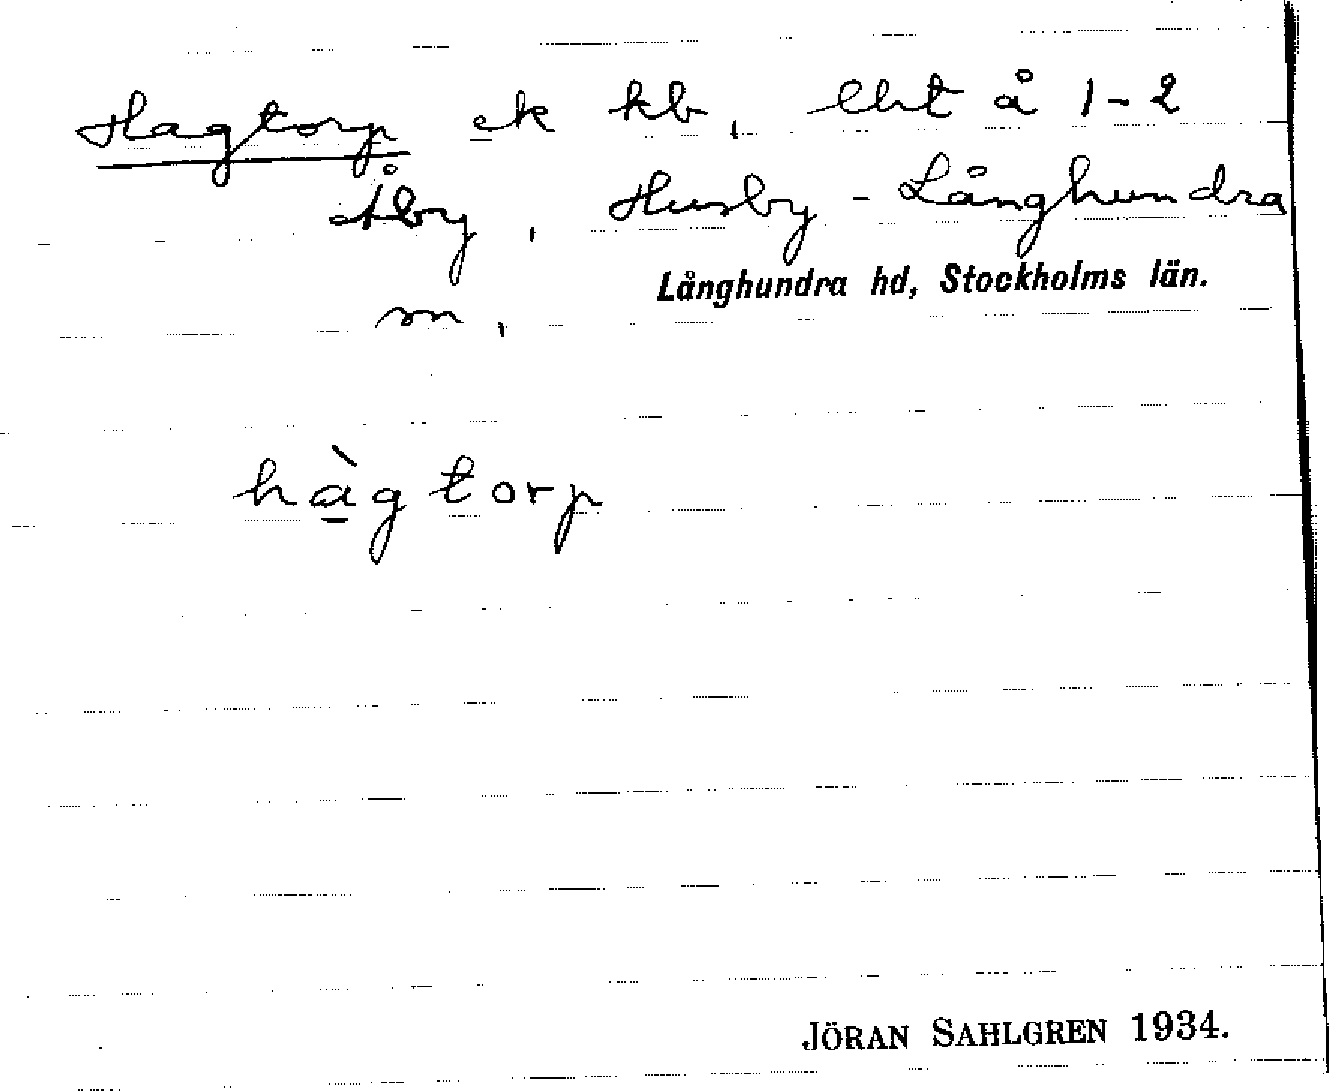 Hagtorp ek kb, lht å 1-2
Åby, Husby-Långhundra
Långhundra hd, Stockholms län.
sn,
hàgtorp
JÖRAN SAHLGREN 1934.